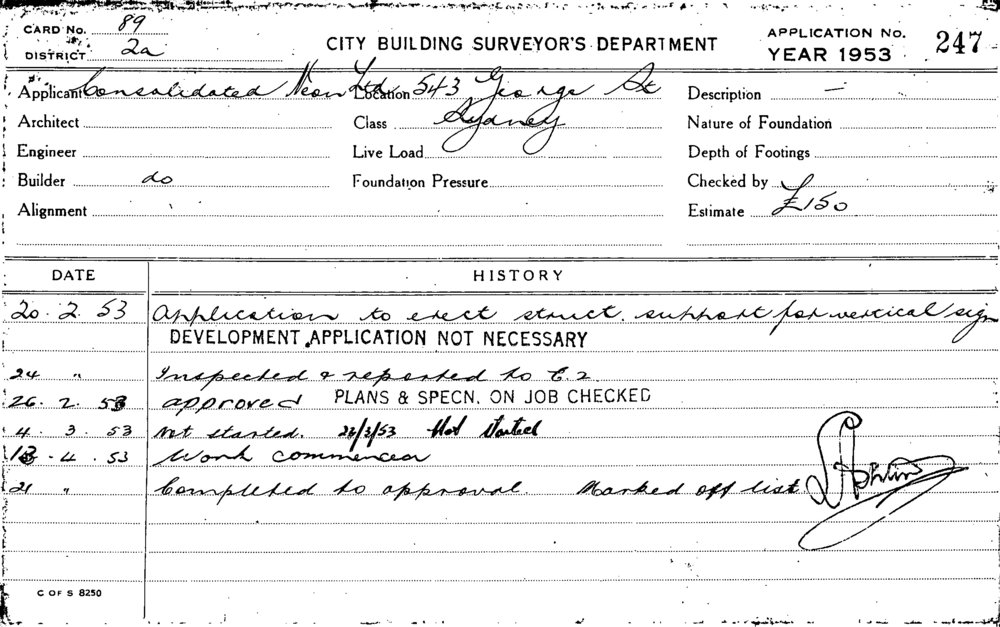 CARD No. 89
DISTRICT 2a
CITY BUILDING SURVEYOR'S DEPARTMENT
APPLICATION No. 247
YEAR 1953
Applicant Consolidated Neon Ltd. Location 543 George St Description —
Architect Class Sydney Nature of Foundation
Engineer Live Load Depth of Footings
Builder do Foundation Pressure Checked by
Alignment Estimate £150
DATE HISTORY
20. 2. 53 Application to erect struct. support for vertical sign
DEVELOPMENT APPLICATION NOT NECESSARY
24 " Inspected & reported to C.2
26. 2. 53 approved PLANS & SPECN. ON JOB CHECKED
4. 3. 53 Not started. 23/3/53 Not started
13. 4. 53 Work commenced
21 " Completed to approval. Marked off list
C OF S 8250